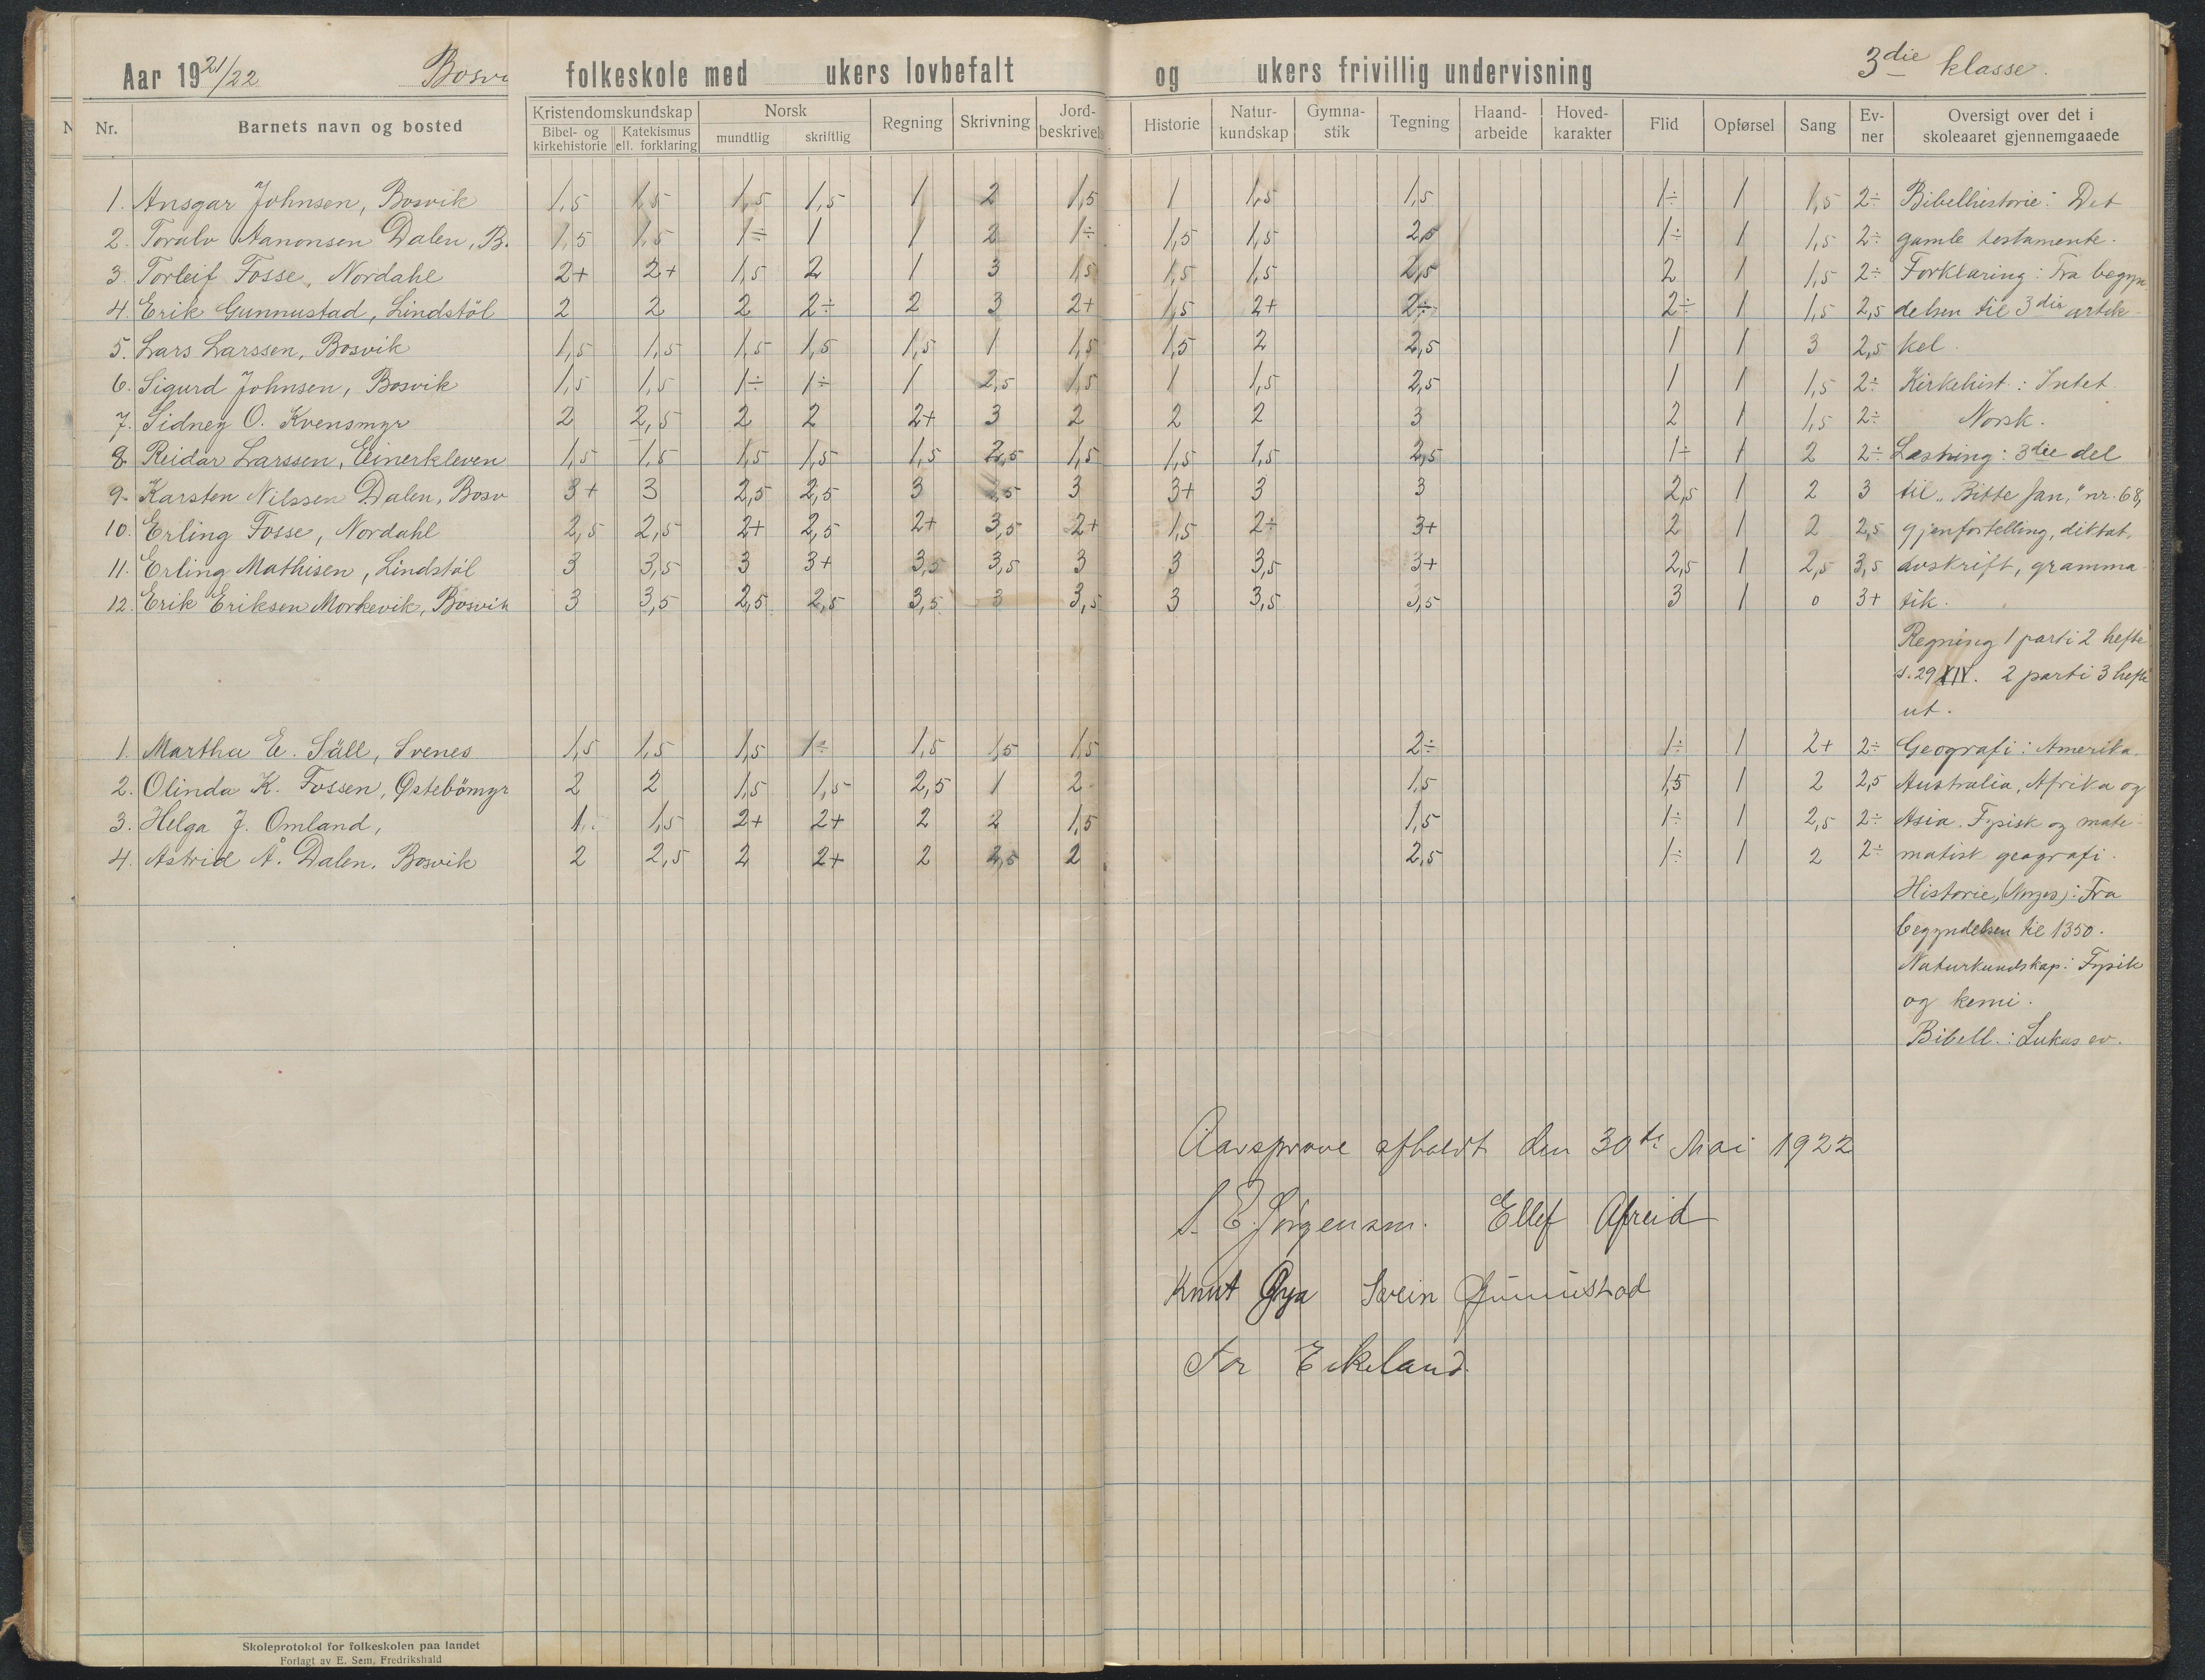 Aar 1921/22 Bosvi folkeskole med ukers lovbefalt og ukers frivillig undervisning 3die klasse.
N Nr. Barnets navn og bosted Kristendomskundskap Bibel- og kirkehistorie Katekismus ell. forklaring Norsk mundtlig skriftlig Regning Skrivning Jord-beskrivels Historie Natur-kundskap Gymna-stik Tegning Haand-arbeide Hoved-karakter Flid Opførsel Sang Ev-ner Oversigt over det i skoleaaret gjennemgaaede
1. Ansgar Johnsen, Bosvik 1,5 1,5 1,5 1,5 1 2 1,5 1 1,5 1,5 1÷ 1 1,5 2÷ Bibelhistorie: Det
2. Toralv Aanonsen Dalen, B. 1,5 1,5 1÷ 1 1 2 1÷ 1,5 1,5 2,5 1÷ 1 1,5 2÷ gamle testamente.
3. Torleif Fosse, Nordahl 2+ 2+ 1,5 2 1 3 1,5 1,5 1,5 2,5 2 1 1,5 2÷ Forklaring: Fra begyn
4. Erik Gunnustad, Lindstöl 2 2 2 2÷ 2 3 2+ 1,5 2+ 2÷ 2÷ 1 1,5 2,5 delsen til 3die artik-
5. Lars Larssen, Bosvik 1,5 1,5 1,5 1,5 1,5 1 1,5 1,5 2 2,5 1 1 3 2,5 kel.
6. Sigurd Johnsen, Bosvik 1,5 1,5 1÷ 1÷ 1 2,5 1,5 1 1,5 2,5 1 1 1,5 2÷ Kirkehist.: Intet.
7. Sidney O. Kvensmyr 2 2,5 2 2 2+ 3 2 2 2 3 2 1 1,5 2÷ Norsk.
8. Reidar Larssen, Einerkleven 1,5 1,5 1,5 1,5 1,5 2,5 1,5 1,5 1,5 2,5 1÷ 1 2 2÷ Læsning: 3die del
9. Karsten Nilssen Dalen, Bosv 3+ 3 2,5 2,5 3 3 3+ 3 3 2,5 1 2 3 til "Bitte Jan," nr. 68,
10. Erling Fosse, Nordahl 2,5 2,5 2+ 2,5 2+ 3,5 2+ 1,5 2÷ 3+ 2 1 2 2,5 gjenfortelling, diktat,
11. Erling Mathisen, Lindstöl 3 3,5 3 3+ 3,5 3,5 3 3 3,5 3+ 2,5 1 2,5 3,5 avskrift, gramma-
12. Erik Eriksen Morkevik, Bosvik 3 3,5 2,5 2,5 3,5 3 3,5 3 3,5 3,5 3 1 0 3+ tik.
Regning 1 parti 2 hefte
s. 29 XIV. 2 parti 3 hefte
ut.
1. Martha E. Säll, Svenes 1,5 1,5 1,5 1÷ 1,5 1,5 1,5 2÷ 1÷ 1 2+ 2÷ Geografi: Amerika
2. Olinda K. Fossen, Østebömyr 2 2 1,5 1,5 2,5 1 2 1,5 1,5 1 2 2,5 Australia, Afrika og
3. Helga J. Omland, 1 1,5 2+ 2+ 2 2 1,5 1,5 1÷ 1 2,5 2÷ Asia. Fysisk og mate-
4. Astrid A. Dalen, Bosvik 2 2,5 2 2+ 2 2,5 2 2,5 1÷ 1 2 2÷ matisk geografi.
Historie, (Norges): Fra
begyndelsen til 1350.
Naturkundskap: Fysik
og kemi.
Bibell.: Lukas ev.
Aarsprøve afholdt den 30te Mai 1922
S. E. Jørgensen. Ellef Øfreid
Knut Øya Svein Gunnustad
Tor Eikeland.
Skoleprotokol for folkeskolen paa landet
Forlagt av E. Sem, Fredrikshald